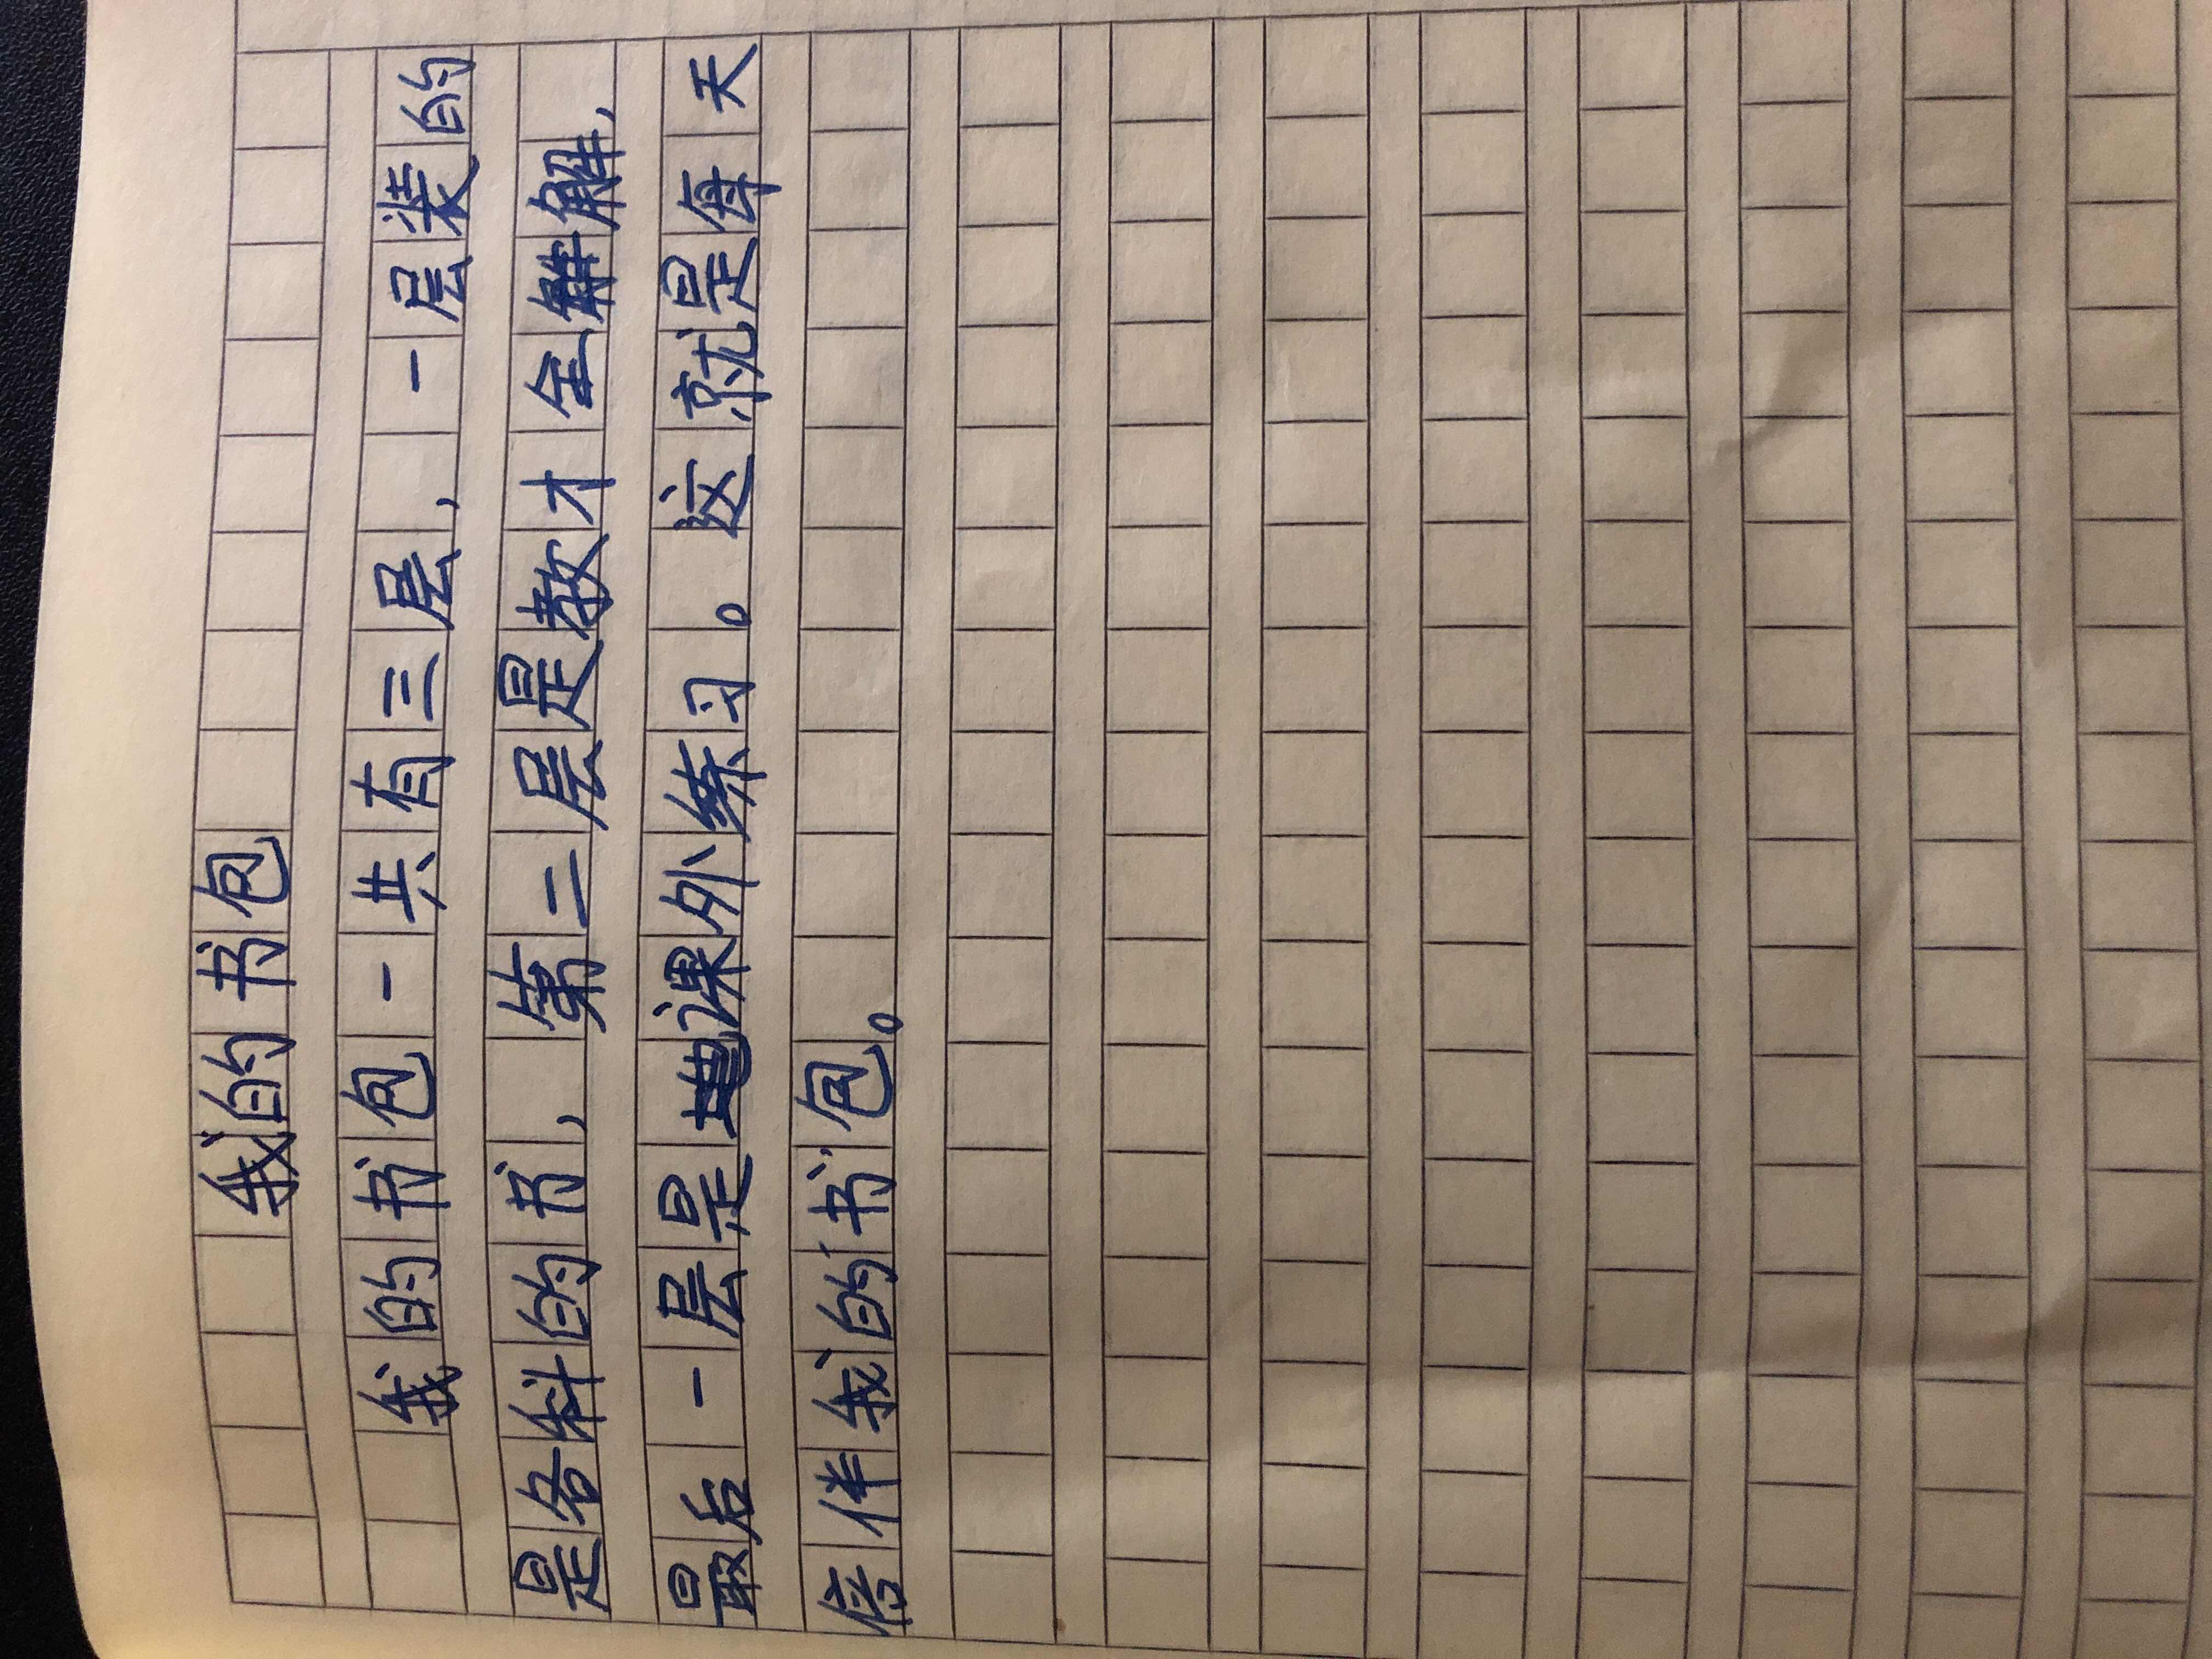 我的书包
我的书包一共有三层，一层装的
是各科的书，第二层是教才全解，
最后一层是课外练习。这就是每天
倍伴我的书包。